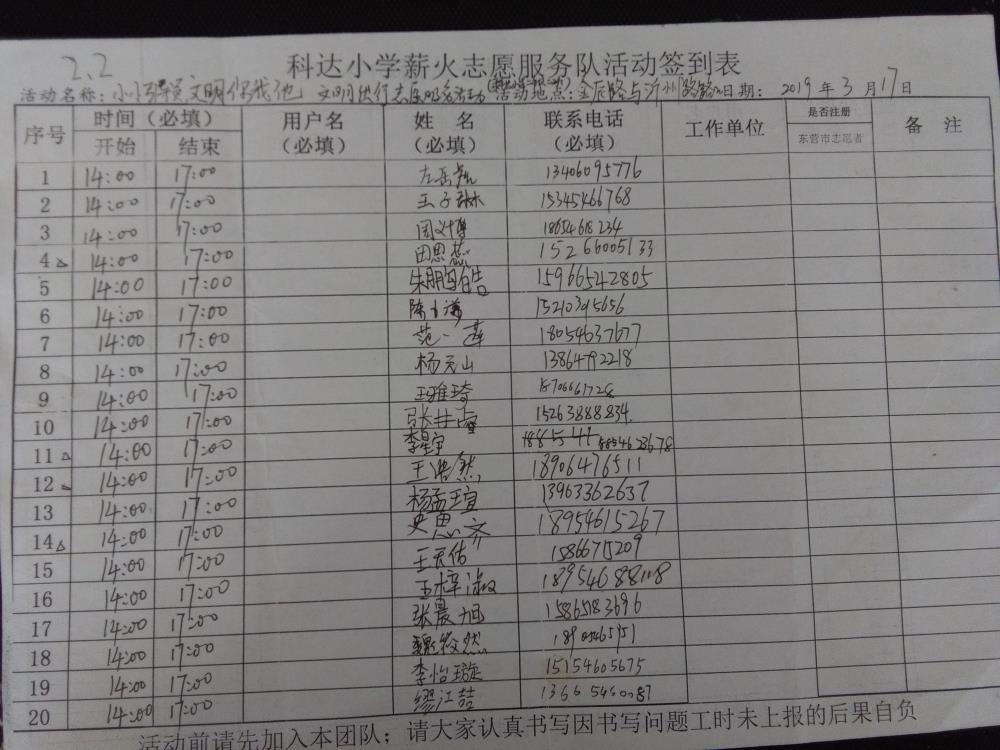 2.2
科达小学薪火志愿服务队活动签到表
活动名称:小小 文明你我他 文明出行志愿服务活动 活动地点:金辰路与沂州路 日期: 2019年3月17日
序号 时间(必填) 用户名 (必填) 姓 名 (必填) 联系电话 (必填) 工作单位 是否注册 东营市志愿者 备 注
开始 结束
1 14:00 17:00 左岳 13406095776
2 14:00 17:00 王子琳 15345466768
3 14:00 17:00 18654618234
4△ 14:00 17:00 田思蕊 15266005133
5 14:00 17:00 朱鹏皓 15966542805
6 14:00 17:00 陈 15210395656
7 14:00 17:00 范一莲 18054637677
8 14:00 17:00 杨云山 13864792218
9 14:00 17:00 王雅琦 18706661728
10 14:00 17:00 张 15263888834
11△ 14:00 17:00 李星宇
12 14:00 17:00 王浩然 18906476511
13 14:00 17:00 杨孟瑄 13963362637
14△ 14:00 17:00 史思齐 18954615267
15 14:00 17:00 王天佑 1586675209
16 14:00 17:00 王梓淑 18954688108
17 14:00 17:00 张晨旭 15865183696
18 14:00 17:00 魏筱然
19 14:00 17:00 李怡璇 15154605675
20 14:00 17:00 缪江喆 13665460087
活动前请先加入本团队;请大家认真书写因书写问题工时未上报的后果自负